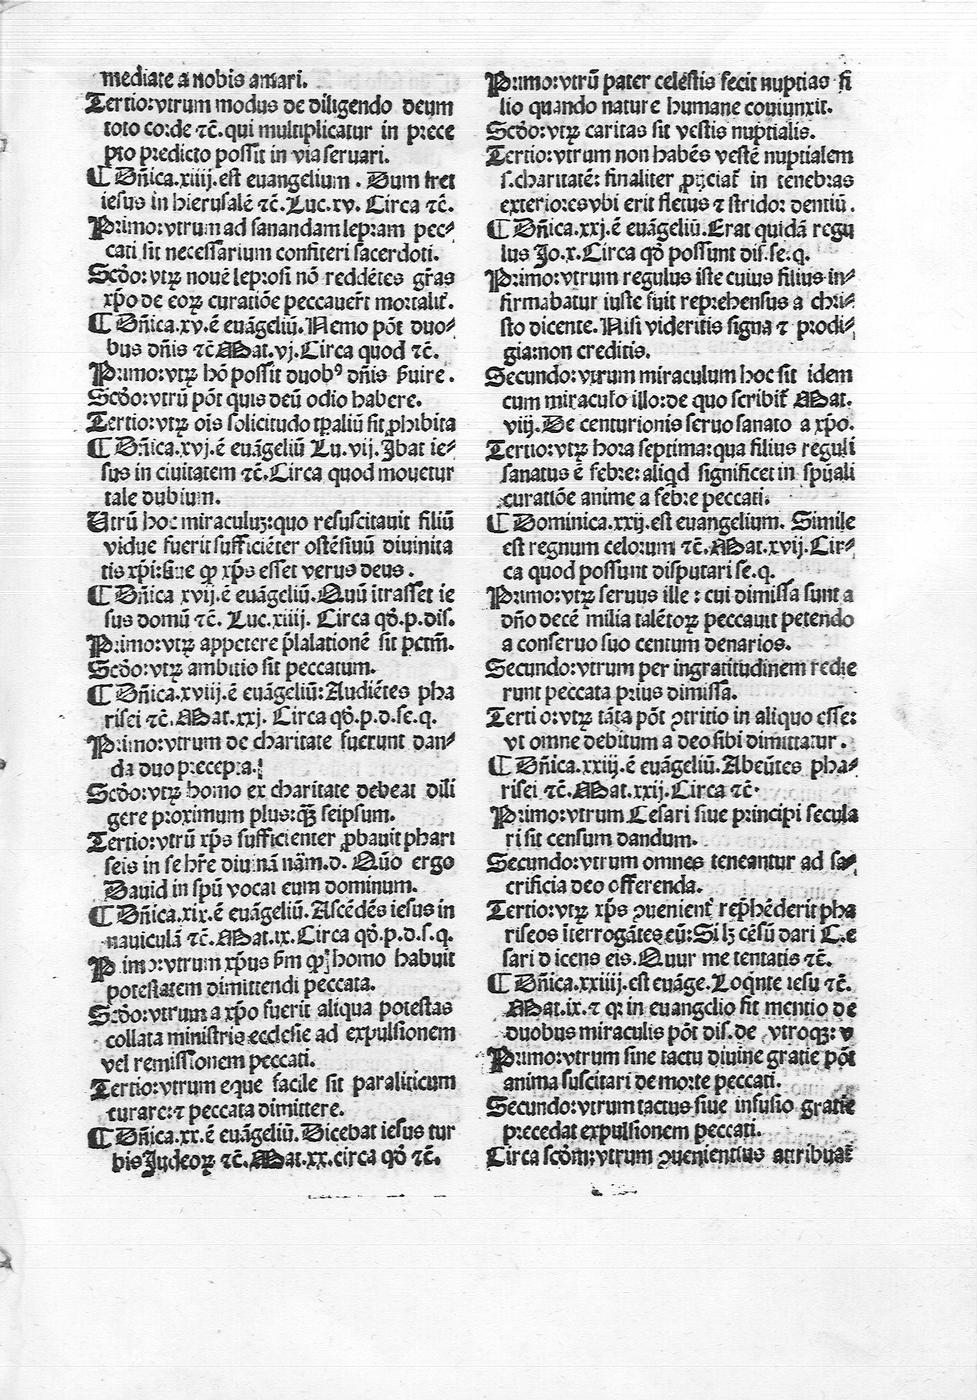 mediate a nobis amari.
Tertio:vtrum modus de diligendo deum
toto corde ⁊c̄.qui multiplicatur in prece
pto predicto possit in via seruari.
¶ Dn̄ica.xiiij.est euangelium . Dum iret
iesus in hierusalē ⁊c̄.Luc.xv. Circa ⁊c̄.
Primo:vtrum ad sanandam lepram pec⸗
cati sit necessarium confiteri sacerdoti.
Scd̄o:vtꝝ nouē leprosi nō reddētes gr̄as
xp̄o de eoꝝ curatiōe peccauer̄t mortalit̄.
¶ Dn̄ica.xv.ē euāgeliū.Nemo pōt duo⸗
bus dn̄is ⁊c̄ Mat.vj.Circa quod ⁊c̄.
Primo:vtꝝ hō possit duobꝰ dn̄is ẜuire.
Scd̄o:vtrū pōt quis deū odio habere.
Tertio:vtꝝ oīs solicitudo tp̄aliū sit ꝓhibita
¶ Dn̄ica.xvj.ē euāgeliū Lu.vij.Ibat ie⸗
sus in ciuitatem ⁊c̄.Circa quod mouetur
tale dubium.
Utrū hoc miraculuꝫ:quo resuscitauit filiū
vidue fuerit sufficiēter ostēsiuū diuinita
tis xp̄i:siue ꝙ xp̄s esset verus deus.
¶ Dn̄ica xvij.ē euāgeliū.Quū itrasset ie
sus domū ⁊c̄. Luc.xiiij. Circa qd̄.p.dis.
Primo:vtꝝ appetere p̄lalationē sit pctm̄.
Scd̄o:vtꝝ ambitio sit peccatum.
¶ Dn̄ica.xviij.ē euāgeliū:Audiētes pha
risei ⁊c̄.Mat.xxj. Circa qd̄.p.d.se.q.
Primo:vtrum de charitate fuerunt dan⸗
da duo precepta.
Scd̄o:vtꝝ homo ex charitate debeat dili
gere proximum plus:ꝙ̄ seipsum.
Tertio:vtrū xp̄s sufficienter ꝓbauit phari
seis in se hr̄e diuinā nām.d. Quō ergo
Dauid in spū vocat eum dominum.
¶ Dn̄ica.xix.ē euāgeliū.Ascēdēs iesus in
nauiculā ⁊c̄.Mat.ix.Circa qd̄.p.d.s.q.
Primo:vtrum xp̄us ẜm ꝙ homo habuit
potestatem dimittendi peccata.
Scd̄o:vtrum a xp̄o fuerit aliqua potestas
collata ministris ecclesie ad expulsionem
vel remissionem peccati.
Tertio:vtrum eque facile sit paraliticum
curare:⁊ peccata dimittere.
¶ Dn̄ica.xx.ē euāgeliū.Dicebat iesus tur
bis Judeoꝝ ⁊c̄.Mat.xx.circa qd̄ ⁊c̄.
Primo:vtrū pater celestis fecit nuptias fi
lio quando nature humane coniunxit.
Scd̄o:vtꝝ caritas sit vestis nuptialis.
Tertio:vtrum non habēs vestē nuptialem
s.charitatē: finaliter ꝓijciat̄ in tenebras
exteriores vbi erit fletus ⁊ stridor dentiū.
¶ Dn̄ica.xxj.ē euāgeliū.Erat quidā regu
lus Jo.x.Circa qd̄ possunt dis.se.q.
Primo:vtrum regulus iste cuius filius in⸗
firmabatur iuste fuit reprehensus a chri⸗
sto dicente.Nisi videritis signa ⁊ prodi⸗
gia:non creditis.
Secundo:vtrum miraculum hoc sit idem
cum miraculo illo:de quo scribit̄ Mat.
viij.De centurionis seruo sanato a xp̄o.
Tertio:vtꝝ hora septima:qua filius reguli
sanatus ē febre:aliqd significet in spūali
curatiōe anime a febre peccati.
¶ Dominica.xxij.est euangelium. Simile
est regnum celorum ⁊c̄.Mat.xvij.Cir⸗
ca quod possunt disputari se.q.
Primo:vtꝝ seruus ille : cui dimissa sunt a
dn̄o decē milia talētoꝝ peccauit petendo
a conseruo suo centum denarios.
Secundo:vtrum per ingratitudinem redie
runt peccata prius dimissa.
Terti o:vtꝝ tāta pōt ꝯtritio in aliquo esse:
vt omne debitum a deo sibi dimittatur.
¶ Dn̄ica.xxiij.ē euāgeliū.Abeūtes pha⸗
risei ⁊c̄.Mat.xxij.Circa ⁊c̄.
Primo:vtrum Cesari siue principi secula
ri sit censum dandum.
Secundo:vtrum omnes teneantur ad sa⸗
crificia deo offerenda.
Tertio:vtꝝ xp̄s ꝯuenient̄ rep̄hēderit pha
riseos īterrogātes eū:Si lꝫ cēsū dari Ce
sari dicens eis.Quur me tentatis ⁊c̄.
¶ Dn̄ica.xxiiij.est euāge.Loqn̄te iesu ⁊c̄.
Mat.ix.⁊ qꝛ in euangelio fit mentio de
duobus miraculis pōt dis.de vtroqꝫ: v
Primo:vtrum sine tactu diuine gratie pōt
anima suscitari de morte peccati.
Secundo:vtrum tactus siue infusio gratie
precedat expulsionem peccati.
Circa scd̄m:vtrum ꝯuenientius attribuat̄